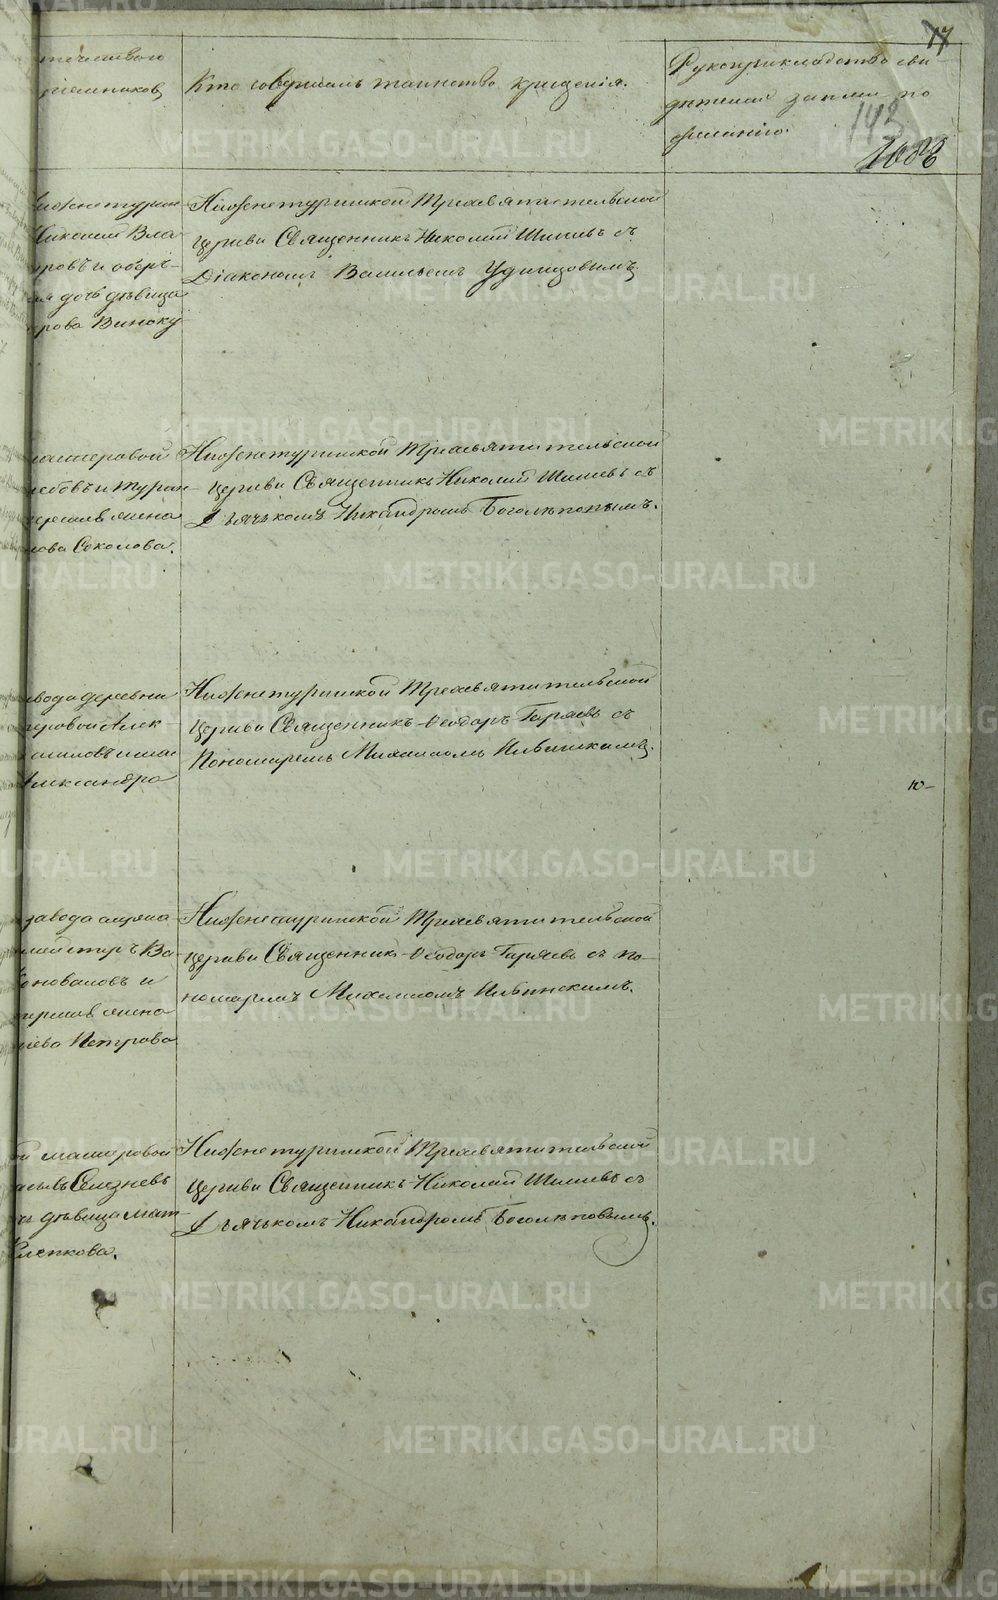 17
142
1088
течества
приемниковъ
Кто совершалъ таинство крещенія.
Рукоприкладство сви-
дѣтелей записи по
желанію.
Нижнетурин
Николай Вла
ровъ и
дочь дѣвица
рова Виноку
Нижнетуринской Трехсвятительской
церкви Священникъ Николай Шишевъ съ
Діакономъ Васильемъ Удинцовымъ.
мастеровой
лебовъ и Турин
жена
лова Соколова.
Нижнетуринской Трехсвятительской
церкви Священникъ Николай Шишевъ съ
Дьячькомъ Никандромъ Боголѣповымъ.
завода деревни
теровой Алек
Александра
Нижнетуринской Трехсвятительской
церкви Священникъ Ѳеодоръ Гаряевъ съ
Пономаремъ Михаиломъ Ильинскимъ.
завода
мейстеръ Ва
новаловъ и
жена
Петрова
Нижнетуринской Трехсвятительской
церкви Священникъ Ѳеодоръ Гаряевъ съ по-
номаремъ Михаиломъ Ильинскимъ.
ой мастеровой
Селезневъ
дѣвица Мат
лепкова.
Нижнетуринской Трехсвятительской
церкви Священникъ Николай Шишевъ съ
Дьячькомъ Никандромъ Боголѣповымъ.
METRIKI.GASO-URAL.RU